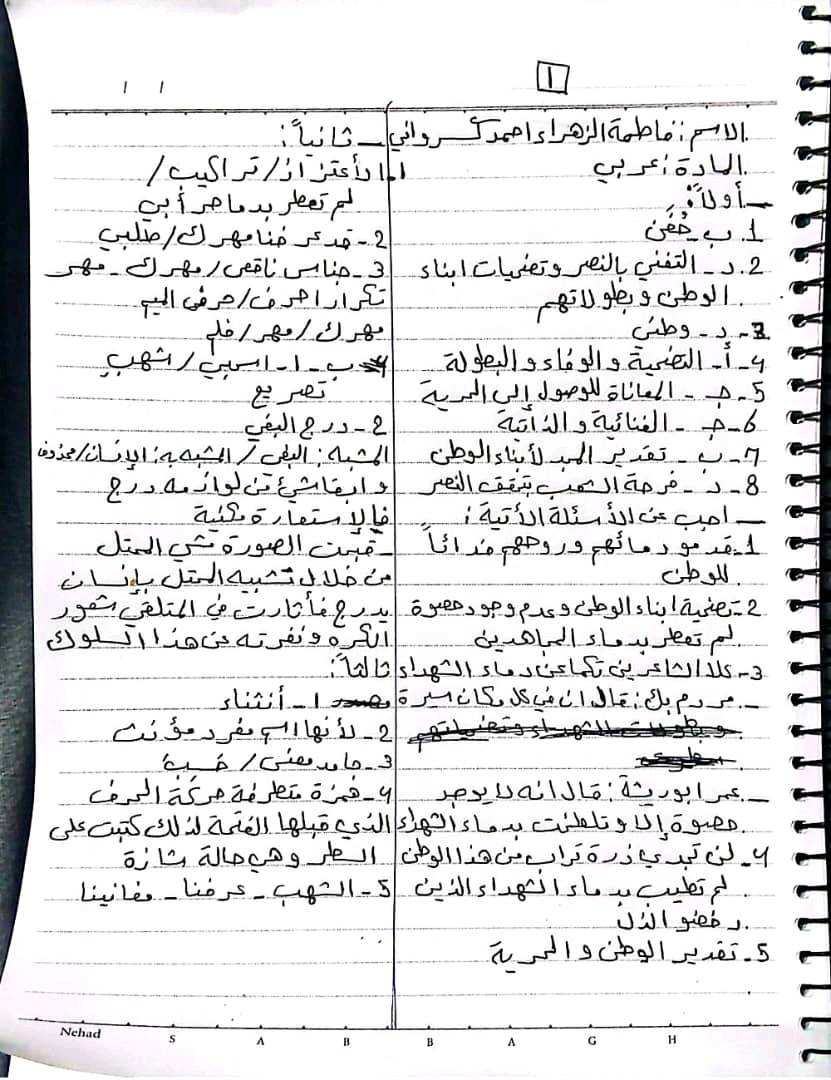 1
/ /
الاسم: فاطمة الزهراء احمد كرواني
المادة: عربي
أولاً:
1. ب_
2. د_ التغني بالنصر وتضحيات ابناء
الوطن وبطولاتهم
3- د- وطني
4- أ- التضحية والوفاء والبطولة
5- جـ - المعاناة للوصول إلى الحرية
6- جـ - الغنائية والذاتية
7- ب- تقدير المجد لأبناء الوطن
8- د- فرحة الشعب بتحقق النصر
_ اجب عن الأسئلة الأتية:
1. قدمو دمائهم وروحهم فدائاً
للوطن
2- تضحية ابناء الوطن وعدم وجود حصوة
لم تعطر بدماء المجاهدين
3- كلا الشاعرين تكلما عن دماء الشهداء
_ مردم بك: قال ان في كل مكان سيرة
وبطولات الشهداء وتضحياتهم
_ عمر ابو ريشة: قال انه لا يوجد
حصوة إلا وتلطخت بدماء الشهداء
4- لن تجدي ذرة تراب من هذا الوطن
لم تطيب بدماء الشهداء الذين
رفضو الذل
5- تقدير الوطن والحرية
_ ثانياً:
1- الأعتزاز / تراكيب /
لم تعطر بدما حر أبي
2- قد عر فنا مهرك / طلبي
3- جناس ناقص / مهرك - مهر
تكرار احرف / حرف الميم
مهرك / مهر / فلم
ب- 1- اسحبي / شهب
تصريع
2- درج البغي
المشبه: البغي / المشبه به: الإنسان / محذوف
وابقا شيئ من لوازمه درج
فالإستعارة مكنية
_ قبحت الصورة مشي المحتل
من خلال تشبيه المحتل بإنسان
يدرج فأثارت في المتلقي شعور
الكره ونفرته من هذا السلوك
ثالثاً:
1- أنثناء
2- لأنها اسم مفرد مؤنث
3- جامد معنى /
4- همزة متطرفة حركة الحرف
الذي قبلها الفتحة لذلك كتبت على
السطر وهي حالة شاذة
5- الشهب - عرفنا - مغانينا
Nehad
S A B B A G H